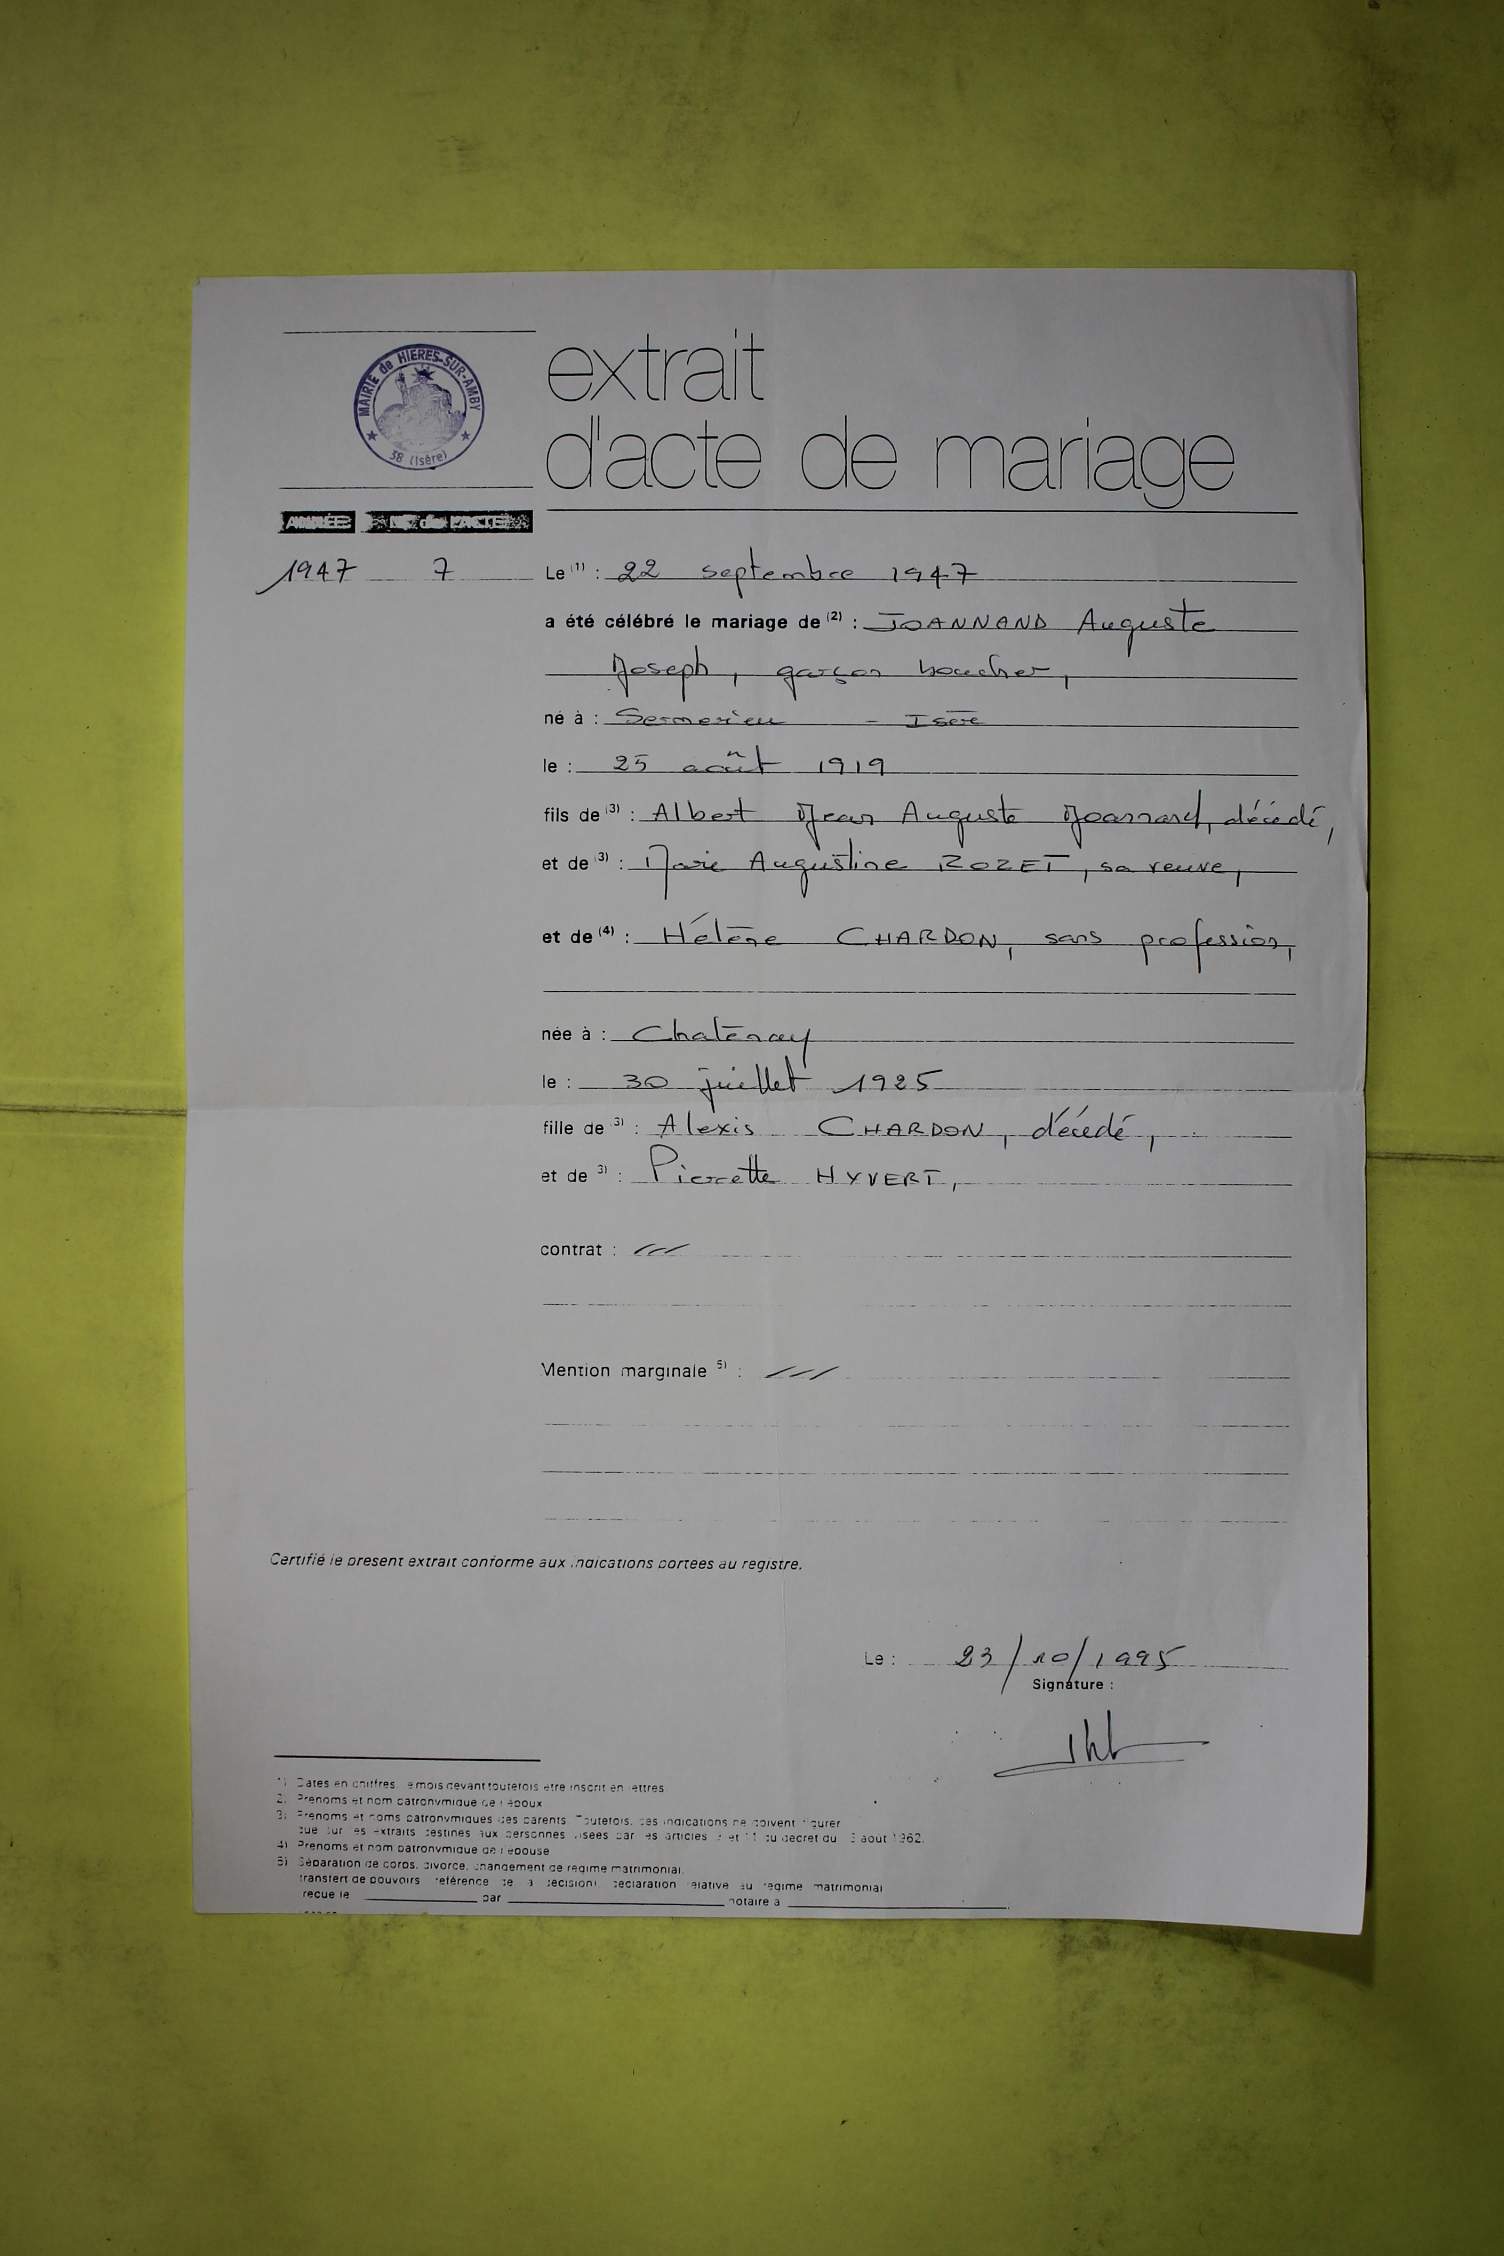 MAIRIE de HIERES-SUR-AMBY
38 (Isère)
extrait
d'acte de mariage
ANNÉE N° de l'ACTE
1947 7
Le (1) : 22 septembre 1947
a été célébré le mariage de (2) : JOANNAND Auguste
Joseph, garçon boucher,
né à : Sermerieu - Isère
le : 25 août 1919
fils de (3) : Albert Jean Auguste Joannand, décédé,
et de (3) : Marie Augustine ROZET, sa veuve,
et de (4) : Hélène CHARDON, sans profession,
née à : Chatenay
le : 30 juillet 1925
fille de 3) : Alexis CHARDON, décédé,
et de 3) : Pierrette HYVERT,
contrat :
Mention marginale 5) :
Certifié le present extrait conforme aux indications portees au registre.
Le : 23/10/1995
Signature :
1) Dates en chiffres, le mois devant toutefois etre inscrit en lettres
2) Prenoms et nom patronymique de l'epoux
3) Prenoms et noms patronymiques des parents. Toutefois, ces indications ne doivent figurer
que sur les extraits destines aux personnes visees par les articles 9 et 11 du decret du 3 aout 1962.
4) Prenoms et nom patronymique de l'epouse
5) Séparation de corps, divorce, changement de regime matrimonial,
transfert de pouvoirs référence de la decision, declaration relative au regime matrimonial
recue le par notaire a